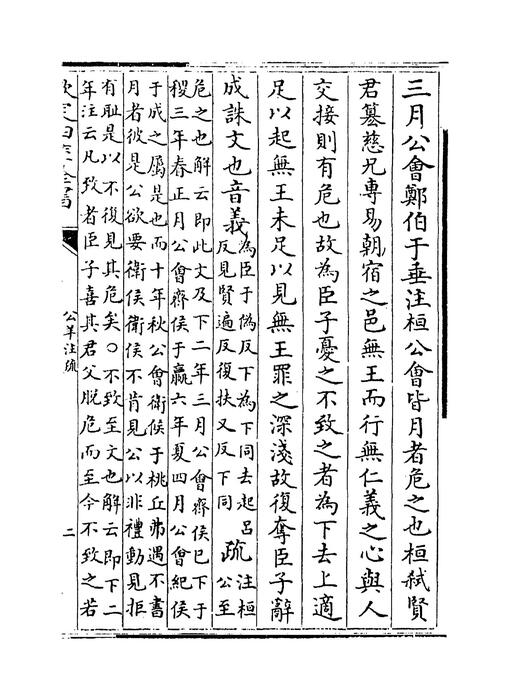 三月公會鄭伯于垂注桓公會皆月者危之也桓弑賢
君篡慈兄專易朝宿之邑無王而行無仁義之心與人
交接則有危也故為臣子憂之不致之者為下去上適
足以起無王未足以見無王罪之深淺故復奪臣子辭
成誅文也音義
為臣于偽反下為下同去起呂
反見賢遍反復扶又反下同
疏
注桓
公至
危之也解云即此文及下二年三月公會齊侯已下于
稷三年春正月公會齊侯于嬴六年夏四月公會紀侯
于成之屬是也而十年秋公會衛侯于桃丘弗遇不書
月者彼是公欲要衛侯衛侯不肯見公以非禮動見拒
有恥是以不復見其危矣○不致至文也解云即下二
年注云凡致者臣子喜其君父脱危而至今不致之若
欽定四庫全書
公羊注疏
二